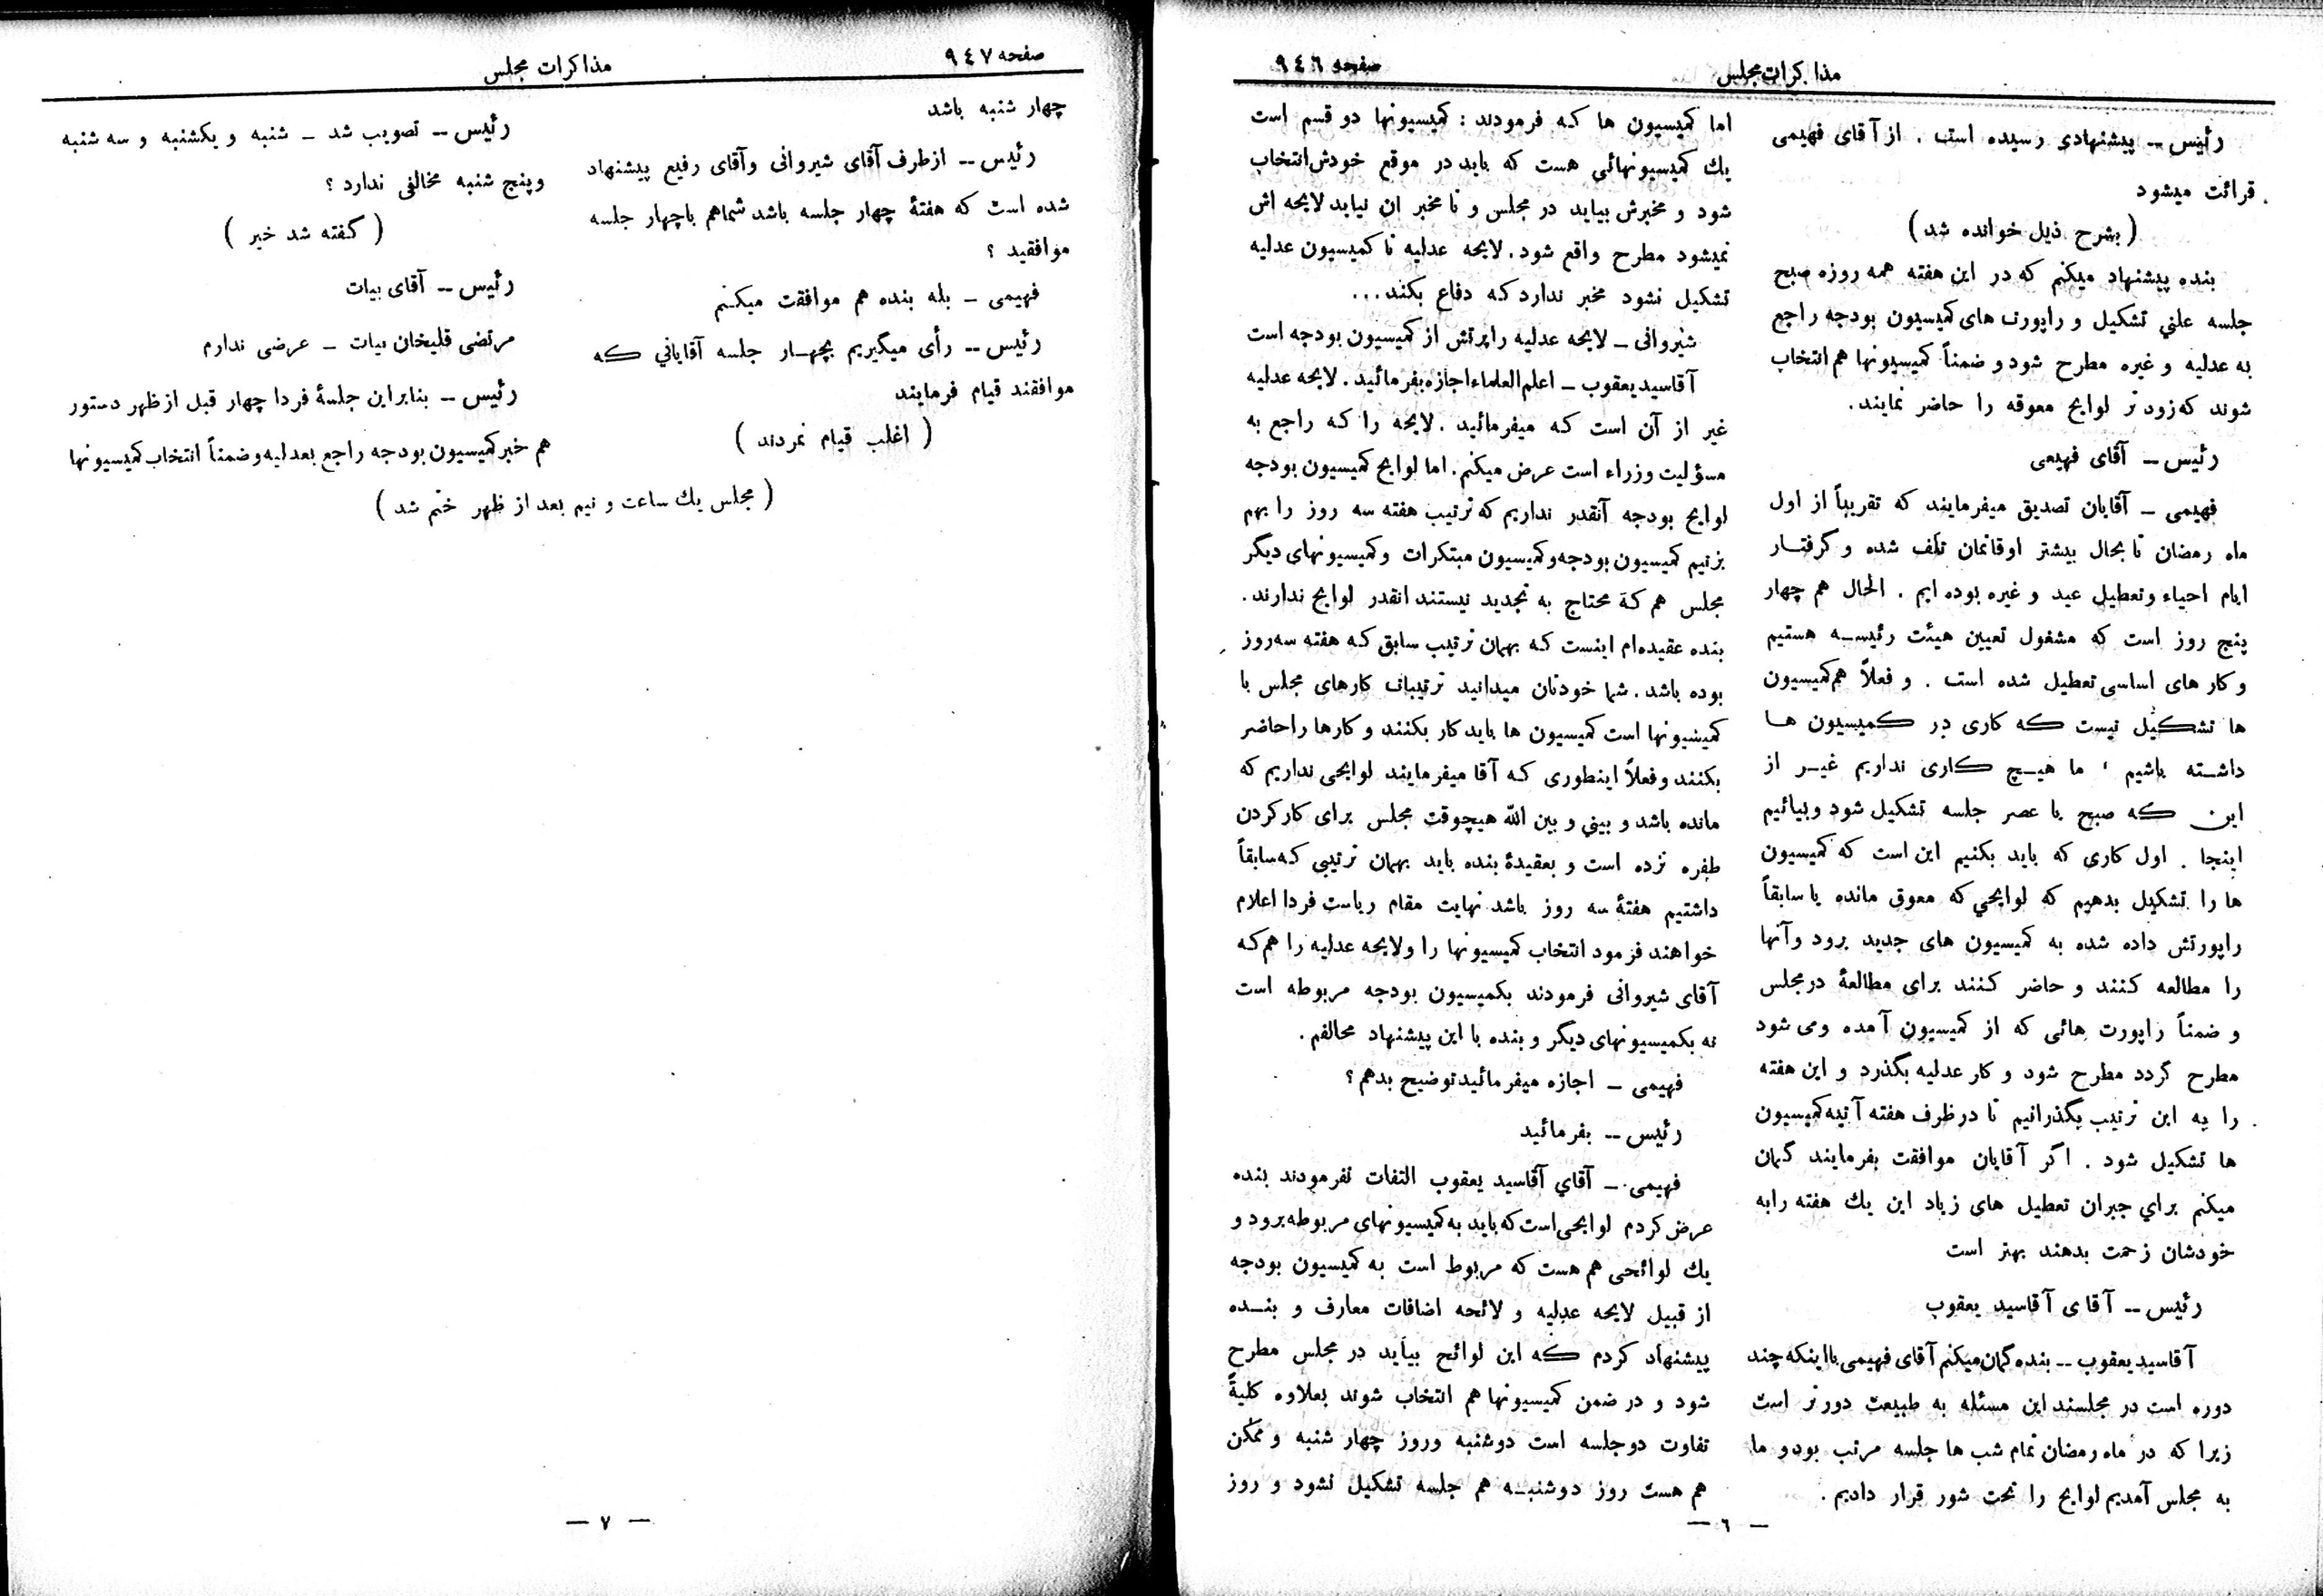 صفحه ٩٤٦
مذاکرات مجلس
رئیس -- پیشنهادی رسیده است . از آقای فهیمی
قرائت میشود
( بشرح ذیل خوانده شد )
بنده پیشنهاد میکنم که در این هفته همه روزه صبح
جلسه علني تشکیل و راپورت های کمیسیون بودجه راجع
به عدلیه و غیره مطرح شود و ضمناً کمیسیونها هم انتخاب
شوند که زود تر لوایح معوقه را حاضر نمایند.
رئیس -- آقای فهیمی
فهیمی - آقایان تصدیق میفرمایند که تقریباً از اول
ماه رمضان تا بحال بیشتر اوقاتمان تلف شده و گرفتار
ایام احیاء و تعطیل عید و غیره بوده ایم . الحال هم چهار
پنج روز است که مشغول تعیین هیئت رئیسه هستیم
و کار های اساسی تعطیل شده است . و فعلاً هم کمیسیون
ها تشکیل نیست که کاری در کمیسیون ها
داشته باشیم ، ما هیچ کاری نداریم غیر از
این که صبح یا عصر جلسه تشکیل شود و بیائیم
اینجا . اول کاری که باید بکنیم این است که کمیسیون
ها را تشکیل بدهیم که لوایحي که معوق مانده یا سابقاً
راپورتش داده شده به کمیسیون های جدید برود و آنها
را مطالعه کنند و حاضر کنند برای مطالعهٔ در مجلس
و ضمناً راپورت هائی که از کمیسیون آمده و می شود
مطرح گردد مطرح شود و کار عدلیه بگذرد و این هفته
را به این ترتیب بگذرانیم تا در ظرف هفته آتیه کمیسیون
ها تشکیل شود . اگر آقایان موافقت بفرمایند گمان
میکنم براي جبران تعطیل های زیاد این یك هفته را به
خودشان زحمت بدهند بهتر است
رئیس -- آقای آقاسید یعقوب
آقاسید یعقوب -- بنده گمان میکنم آقای فهیمی با اینکه چند
دوره است در مجلسند این مسئله به طبیعت دورتر است
زیرا که در ماه رمضان تمام شب ها جلسه مرتب بود و ما
به مجلس آمدیم لوایح را تحت شور قرار دادیم .
اما کمیسیون ها که فرمودند : کمیسیونها دو قسم است
یك کمیسیونهائي هست که باید در موقع خودش انتخاب
شود و مخبرش بیاید در مجلس و تا مخبر ان نیاید لایحه اش
نمیشود مطرح واقع شود . لایحه عدلیه تا کمیسیون عدلیه
تشکیل نشود مخبر ندارد که دفاع بکند...
شیروانی - لایحه عدلیه راپرتش از کمیسیون بودجه است
آقاسید یعقوب - اعلم العلماء اجازه بفرمائید . لایحه عدلیه
غیر از آن است که میفرمائید . لایحه را که راجع به
مسؤلیت وزراء است عرض میکنم . اما لوایح کمیسیون بودجه
لوایح بودجه آنقدر نداریم که ترتیب هفته سه روز را بهم
بزنیم کمیسیون بودجه و کمیسیون مبتکرات و کمیسیونهای دیگر
مجلس هم که محتاج به تجدید نیستند انقدر لوایح ندارند .
بنده عقیده ام اینست که بهمان ترتیب سابق که هفته سه روز
بوده باشد . شما خودتان میدانید ترتیبات کارهای مجلس با
کمیسیونها است کمیسیون ها باید کار بکنند و کارها را حاضر
بکنند و فعلاً اینطوری که آقا میفرمایند لوایحی نداریم که
مانده باشد و بیني و بین الله هیچوقت مجلس برای کار کردن
طفره نزده است و بعقیدهٔ بنده باید بهمان ترتیبی که سابقاً
داشتیم هفتهٔ سه روز باشد نهایت مقام ریاست فردا اعلام
خواهند فرمود انتخاب کمیسیونها را و لایحه عدلیه را هم که
آقای شیروانی فرمودند بکمیسیون بودجه مربوطه است
نه بکمیسیونهای دیگر و بنده با این پیشنهاد مخالفم .
فهیمی - اجازه میفرمائید توضیح بدهم ؟
رئیس -- بفرمائید
فهیمی - آقاي آقاسید یعقوب التفات نفرمودند بنده
عرض کردم لوایحی است که باید به کمیسیونهای مربوطه برود و
یك لوائحی هم هست که مربوط است به کمیسیون بودجه
از قبیل لایحه عدلیه و لائحه اضافات معارف و بنده
پیشنهاد کردم که این لوائح بیاید در مجلس مطرح
شود و در ضمن کمیسیونها هم انتخاب شوند بعلاوه کلیةً
تفاوت دو جلسه است دوشنبه و روز چهار شنبه و ممکن
هم هست روز دوشنبه هم جلسه تشکیل نشود و روز
— ٦ —
صفحه ٩٤٧
مذاکرات مجلس
چهار شنبه باشد
رئیس -- از طرف آقای شیروانی و آقای رفیع پیشنهاد
شده است که هفتهٔ چهار جلسه باشد شما هم با چهار جلسه
موافقید ؟
فهیمی - بله بنده هم موافقت میکنم
رئیس -- رأی میگیریم بچهار جلسه آقایاني که
موافقند قیام فرمایند
( اغلب قیام نمودند )
رئیس -- تصویب شد - شنبه و یکشنبه و سه شنبه
و پنج شنبه مخالفی ندارد ؟
( گفته شد خیر )
رئیس -- آقای بیات
مرتضی قلیخان بیات - عرضی ندارم
رئیس -- بنابراین جلسهٔ فردا چهار قبل از ظهر دستور
هم خبر کمیسیون بودجه راجع بعدلیه و ضمناً انتخاب کمیسیونها
( مجلس یك ساعت و نیم بعد از ظهر ختم شد )
— ٧ —